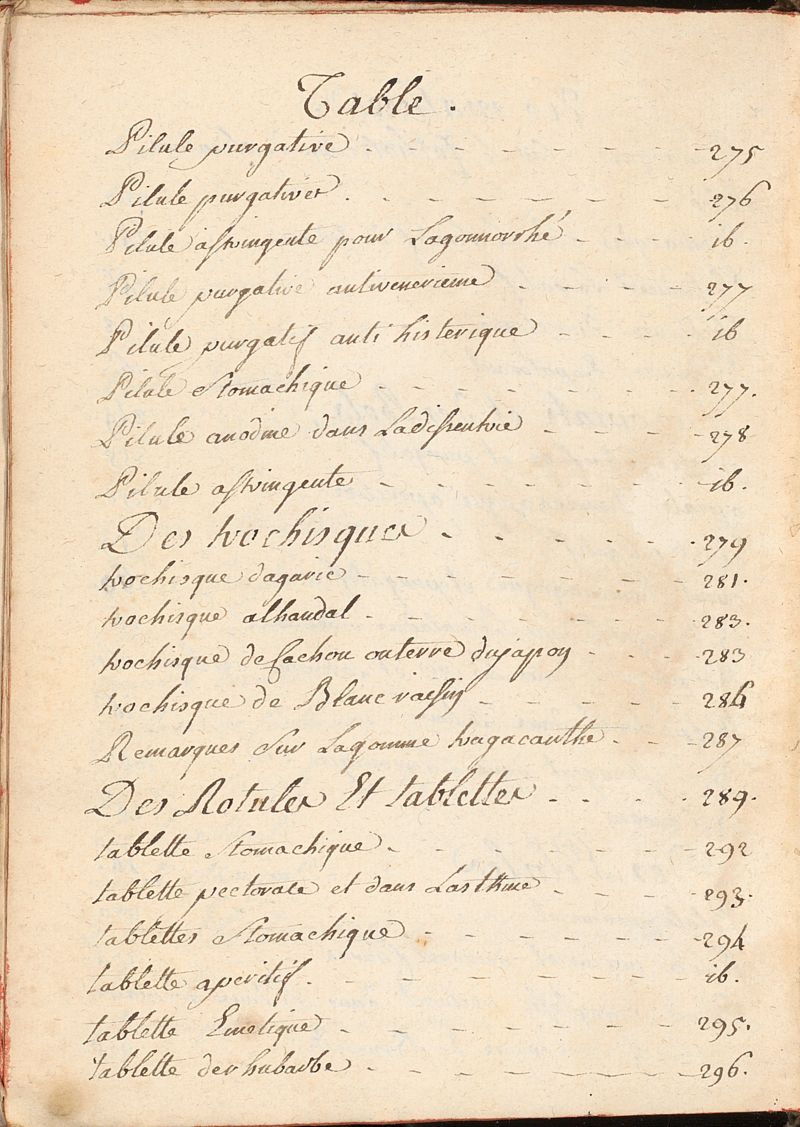 Table.
Pilule purgative - - - - - - - 275
Pilule purgatives - - - - - - - 276
Pilule astringente pour Lagonnorrhé - - - ib.
Pilule purgative antivenerienne - - - - 277
Pilule purgatif anti histerique - - - ib
Pilule Stomachique - - - - - - - 277.
Pilule anodine dans Ladissentrie - - - - 278
Pilule astringente - - - - - - - ib.
Des trochisques - - - - - - 279
trochisque dagaric - - - - - - - 281.
trochisque alhandal - - - - - - - 283.
trochisque de Cachou outerre dujapon - - - 283
trochisque de Blanc raisin - - - - - 286
Remarques Sur Lagomme tragacanthe - - - 287
Des Rotules Et tablettes - - - - 289.
tablette Stomachique - - - - - - - 292
tablette pectorale et dans L'asthme - - - - 293.
tablettes Stomachique - - - - - - 294
tablette aperitif - - - - - - - ib.
tablette Emetique - - - - - - - 295.
tablette derhubarbe - - - - - - 296.